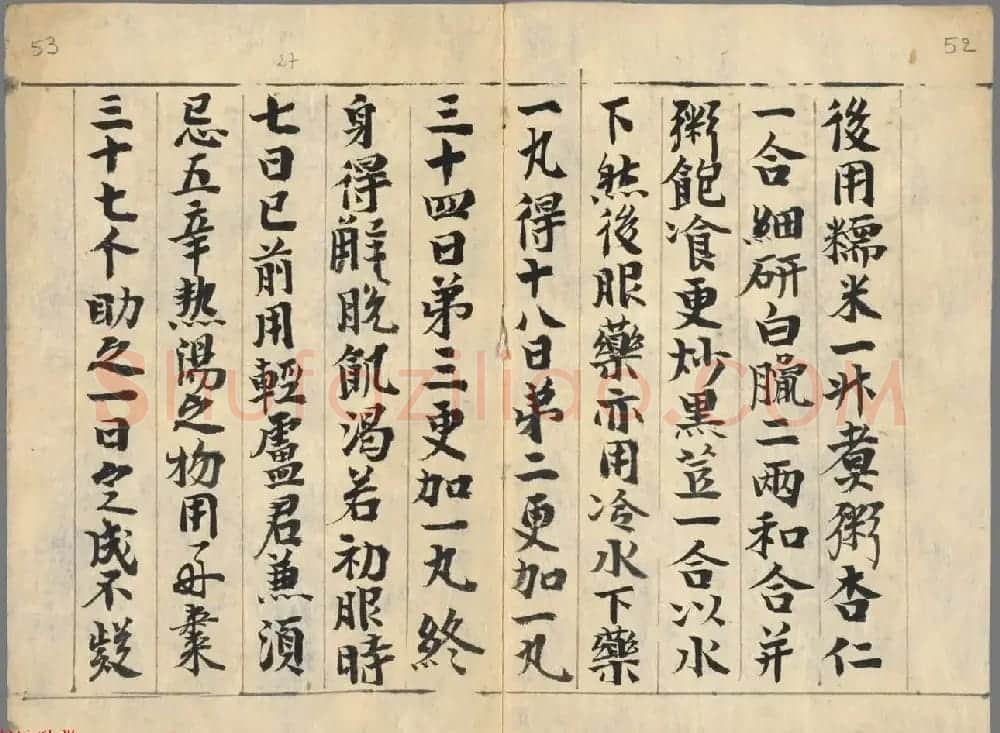 52
後用糯米一升煑粥杏仁
一合細研白臘二兩和合并
粥飽飡更炒黒荳一合以水
下然後服藥亦用冷水下藥
一丸得十八日苐二更加一丸
53
27
三十四日苐三更加一丸終
身得解脫飢渴若初服時
七日已前用輕盧君兼須
忌五辛熱湯之物用子棗
三十七个助之一日之成不疑
Shufaziliao.COM